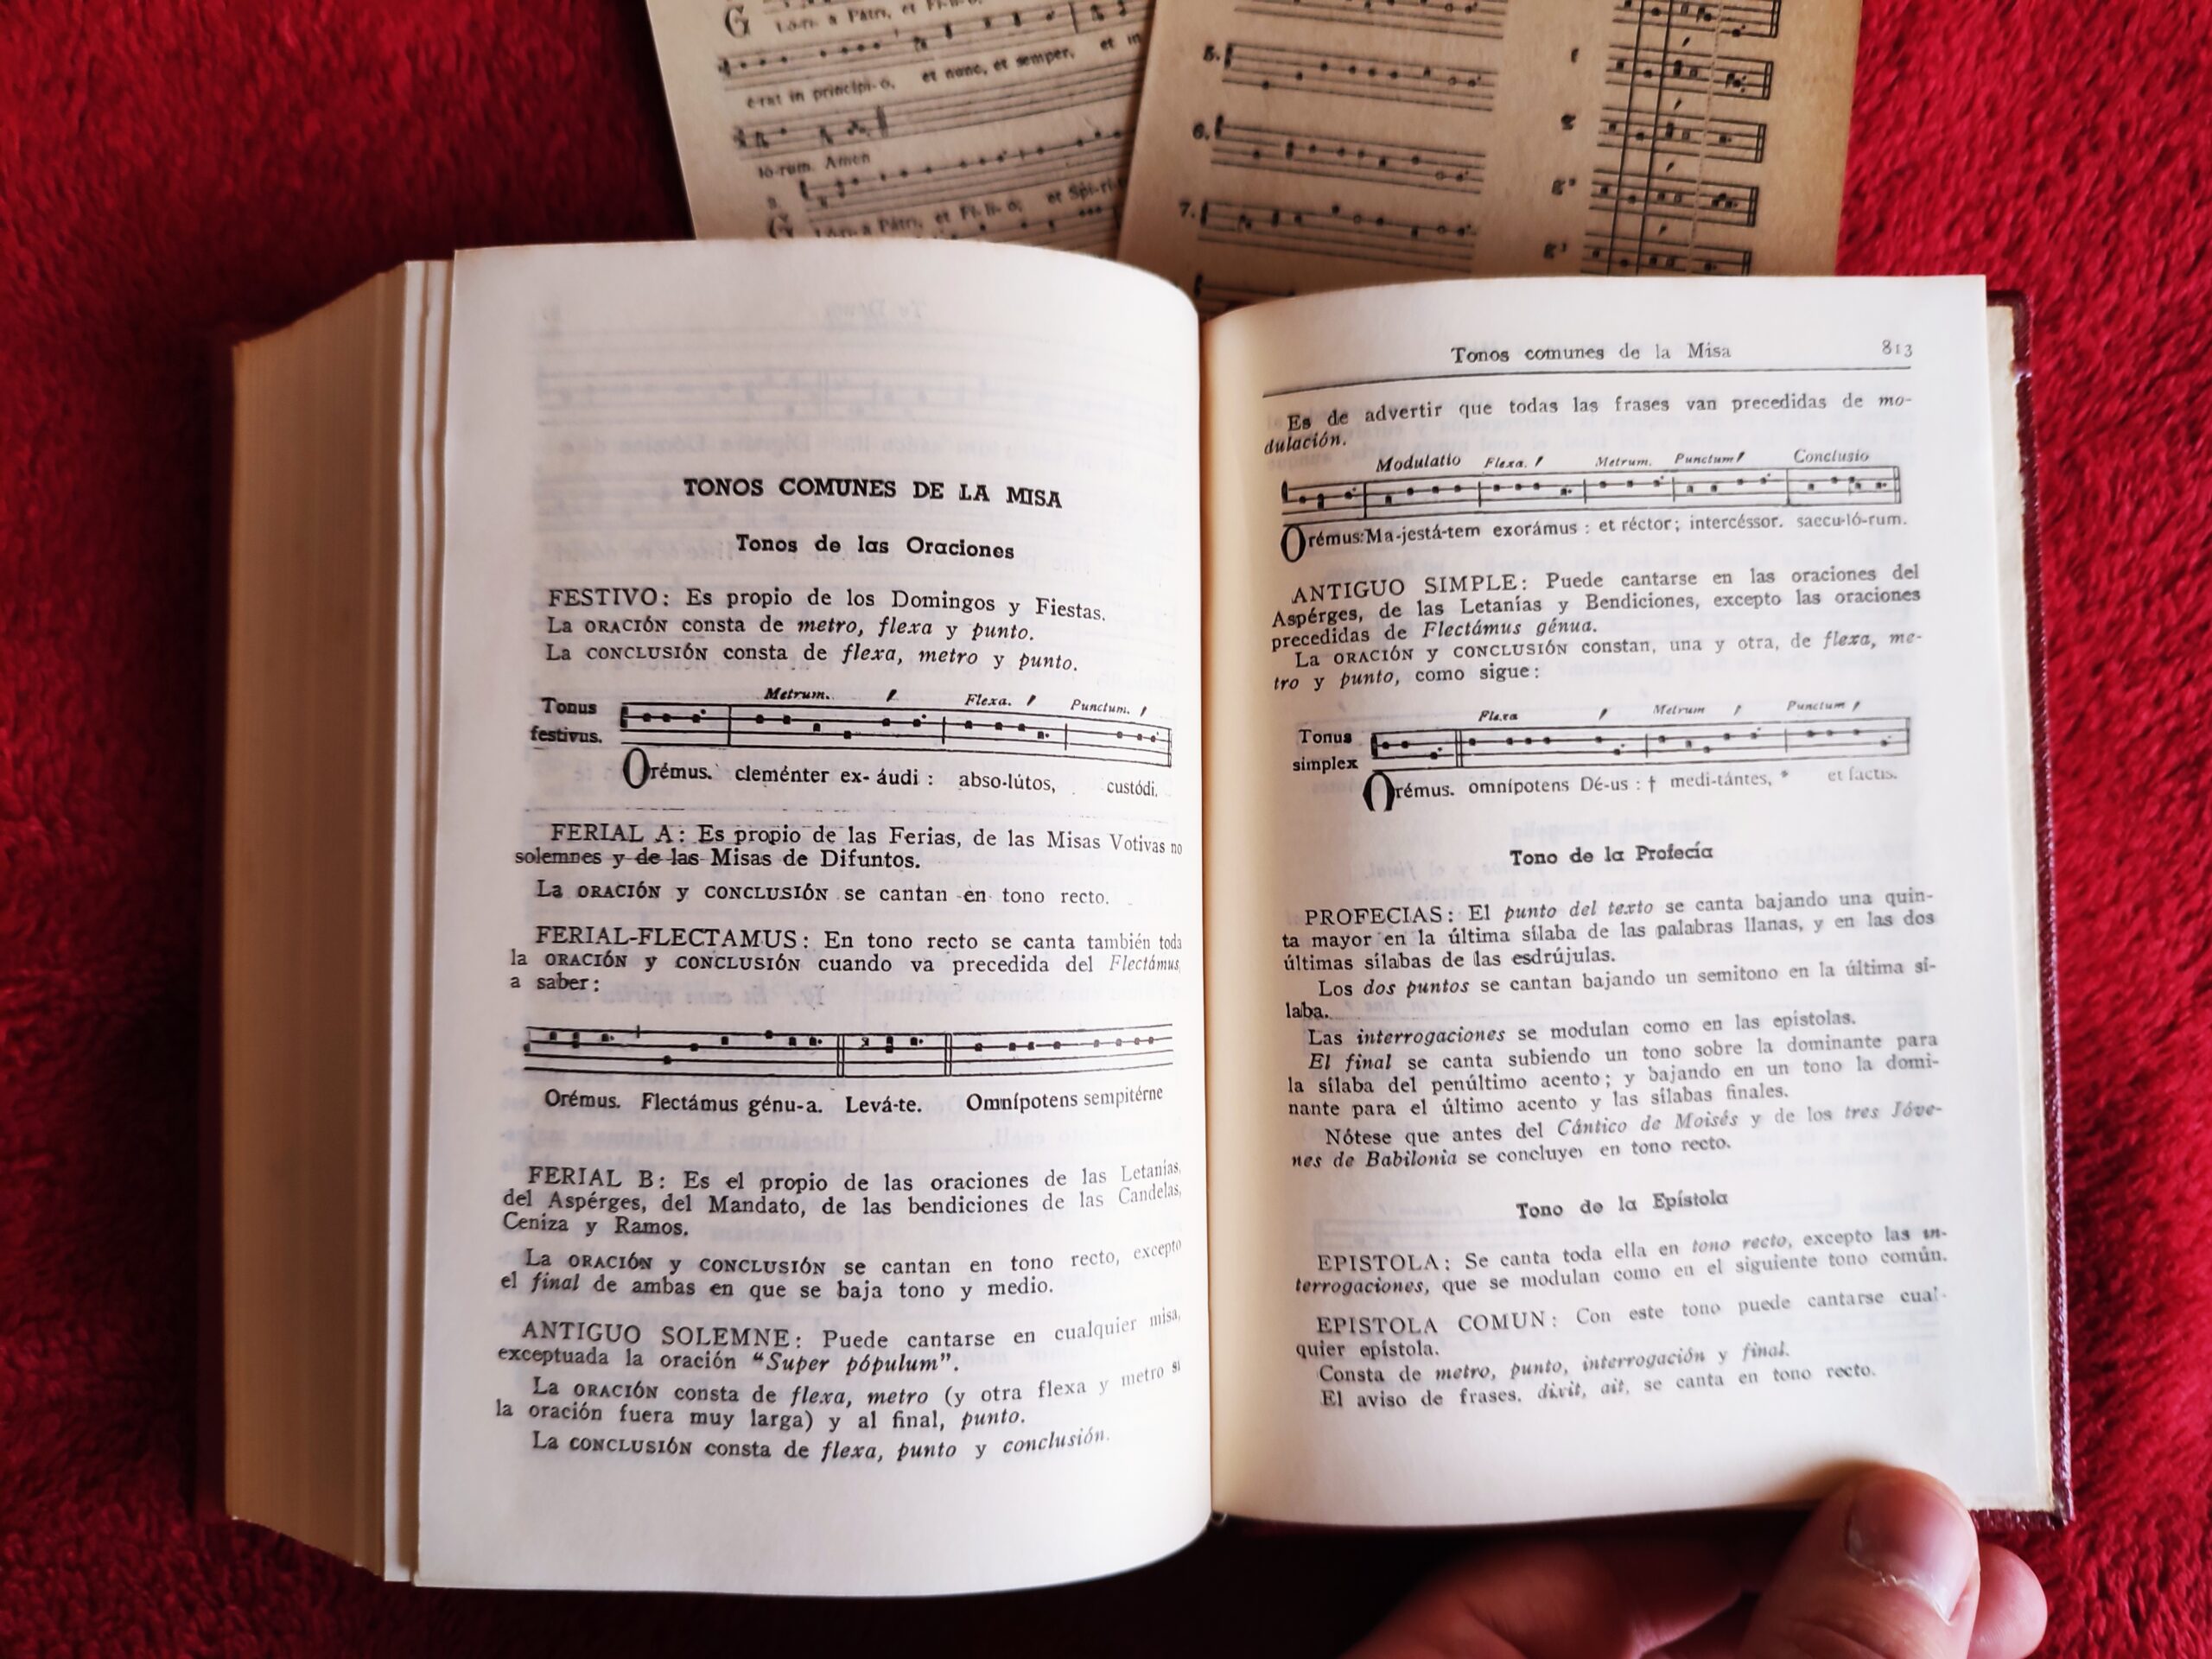 G
ló-ri- a Pátri, et Fí-li-
e-rat in princípi-o, et nunc, et semper, et in
ló-rum. Amen
G
ló-ri- a Pátri, et Fí-li- o, et Spi-rí-
5.
6.
7.
f
g
g²
g³
TONOS COMUNES DE LA MISA
Tonos de las Oraciones
FESTIVO: Es propio de los Domingos y Fiestas.
La ORACIÓN consta de metro, flexa y punto.
La CONCLUSIÓN consta de flexa, metro y punto.
Metrum. Flexa. Punctum.
Tonus
festivus.
Orémus. cleménter ex- áudi : abso-lútos, custódi.
FERIAL A: Es propio de las Ferias, de las Misas Votivas no
solemnes y de las Misas de Difuntos.
La ORACIÓN y CONCLUSIÓN se cantan en tono recto.
FERIAL-FLECTAMUS: En tono recto se canta también toda
la ORACIÓN y CONCLUSIÓN cuando va precedida del Flectámus
a saber:
Orémus. Flectámus génu-a. Levá-te. Omnípotens sempitérne
FERIAL B: Es el propio de las oraciones de las Letanías,
del Aspérges, del Mandato, de las bendiciones de las Candelas,
Ceniza y Ramos.
La ORACIÓN y CONCLUSIÓN se cantan en tono recto, excepto
el final de ambas en que se baja tono y medio.
ANTIGUO SOLEMNE: Puede cantarse en cualquier misa,
exceptuada la oración "Super pópulum".
La ORACIÓN consta de flexa, metro (y otra flexa y metro si
la oración fuera muy larga) y al final, punto.
La CONCLUSIÓN consta de flexa, punto y conclusión.
Tonos comunes de la Misa 813
Es de advertir que todas las frases van precedidas de mo-
dulación.
Modulatio Flexa. Metrum. Punctum Conclusio
Orémus: Ma-jestá-tem exorámus : et réctor; intercéssor. saecu-ló-rum.
ANTIGUO SIMPLE: Puede cantarse en las oraciones del
Aspérges, de las Letanías y Bendiciones, excepto las oraciones
precedidas de Flectámus génua.
La ORACIÓN y CONCLUSIÓN constan, una y otra, de flexa, me-
tro y punto, como sigue:
Flexa Metrum Punctum
Tonus
simplex
Orémus. omnípotens Dé-us : † medi-tántes, * et factis.
Tono de la Profecía
PROFECIAS: El punto del texto se canta bajando una quin-
ta mayor en la última sílaba de las palabras llanas, y en las dos
últimas sílabas de las esdrújulas.
Los dos puntos se cantan bajando un semitono en la última sí-
laba.
Las interrogaciones se modulan como en las epístolas.
El final se canta subiendo un tono sobre la dominante para
la sílaba del penúltimo acento; y bajando en un tono la domi-
nante para el último acento y las sílabas finales.
Nótese que antes del Cántico de Moisés y de los tres Jóve-
nes de Babilonia se concluye en tono recto.
Tono de la Epístola
EPISTOLA: Se canta toda ella en tono recto, excepto las in-
terrogaciones, que se modulan como en el siguiente tono común.
EPISTOLA COMUN: Con este tono puede cantarse cual-
quier epístola.
Consta de metro, punto, interrogación y final.
El aviso de frases, dixit, ait, se canta en tono recto.